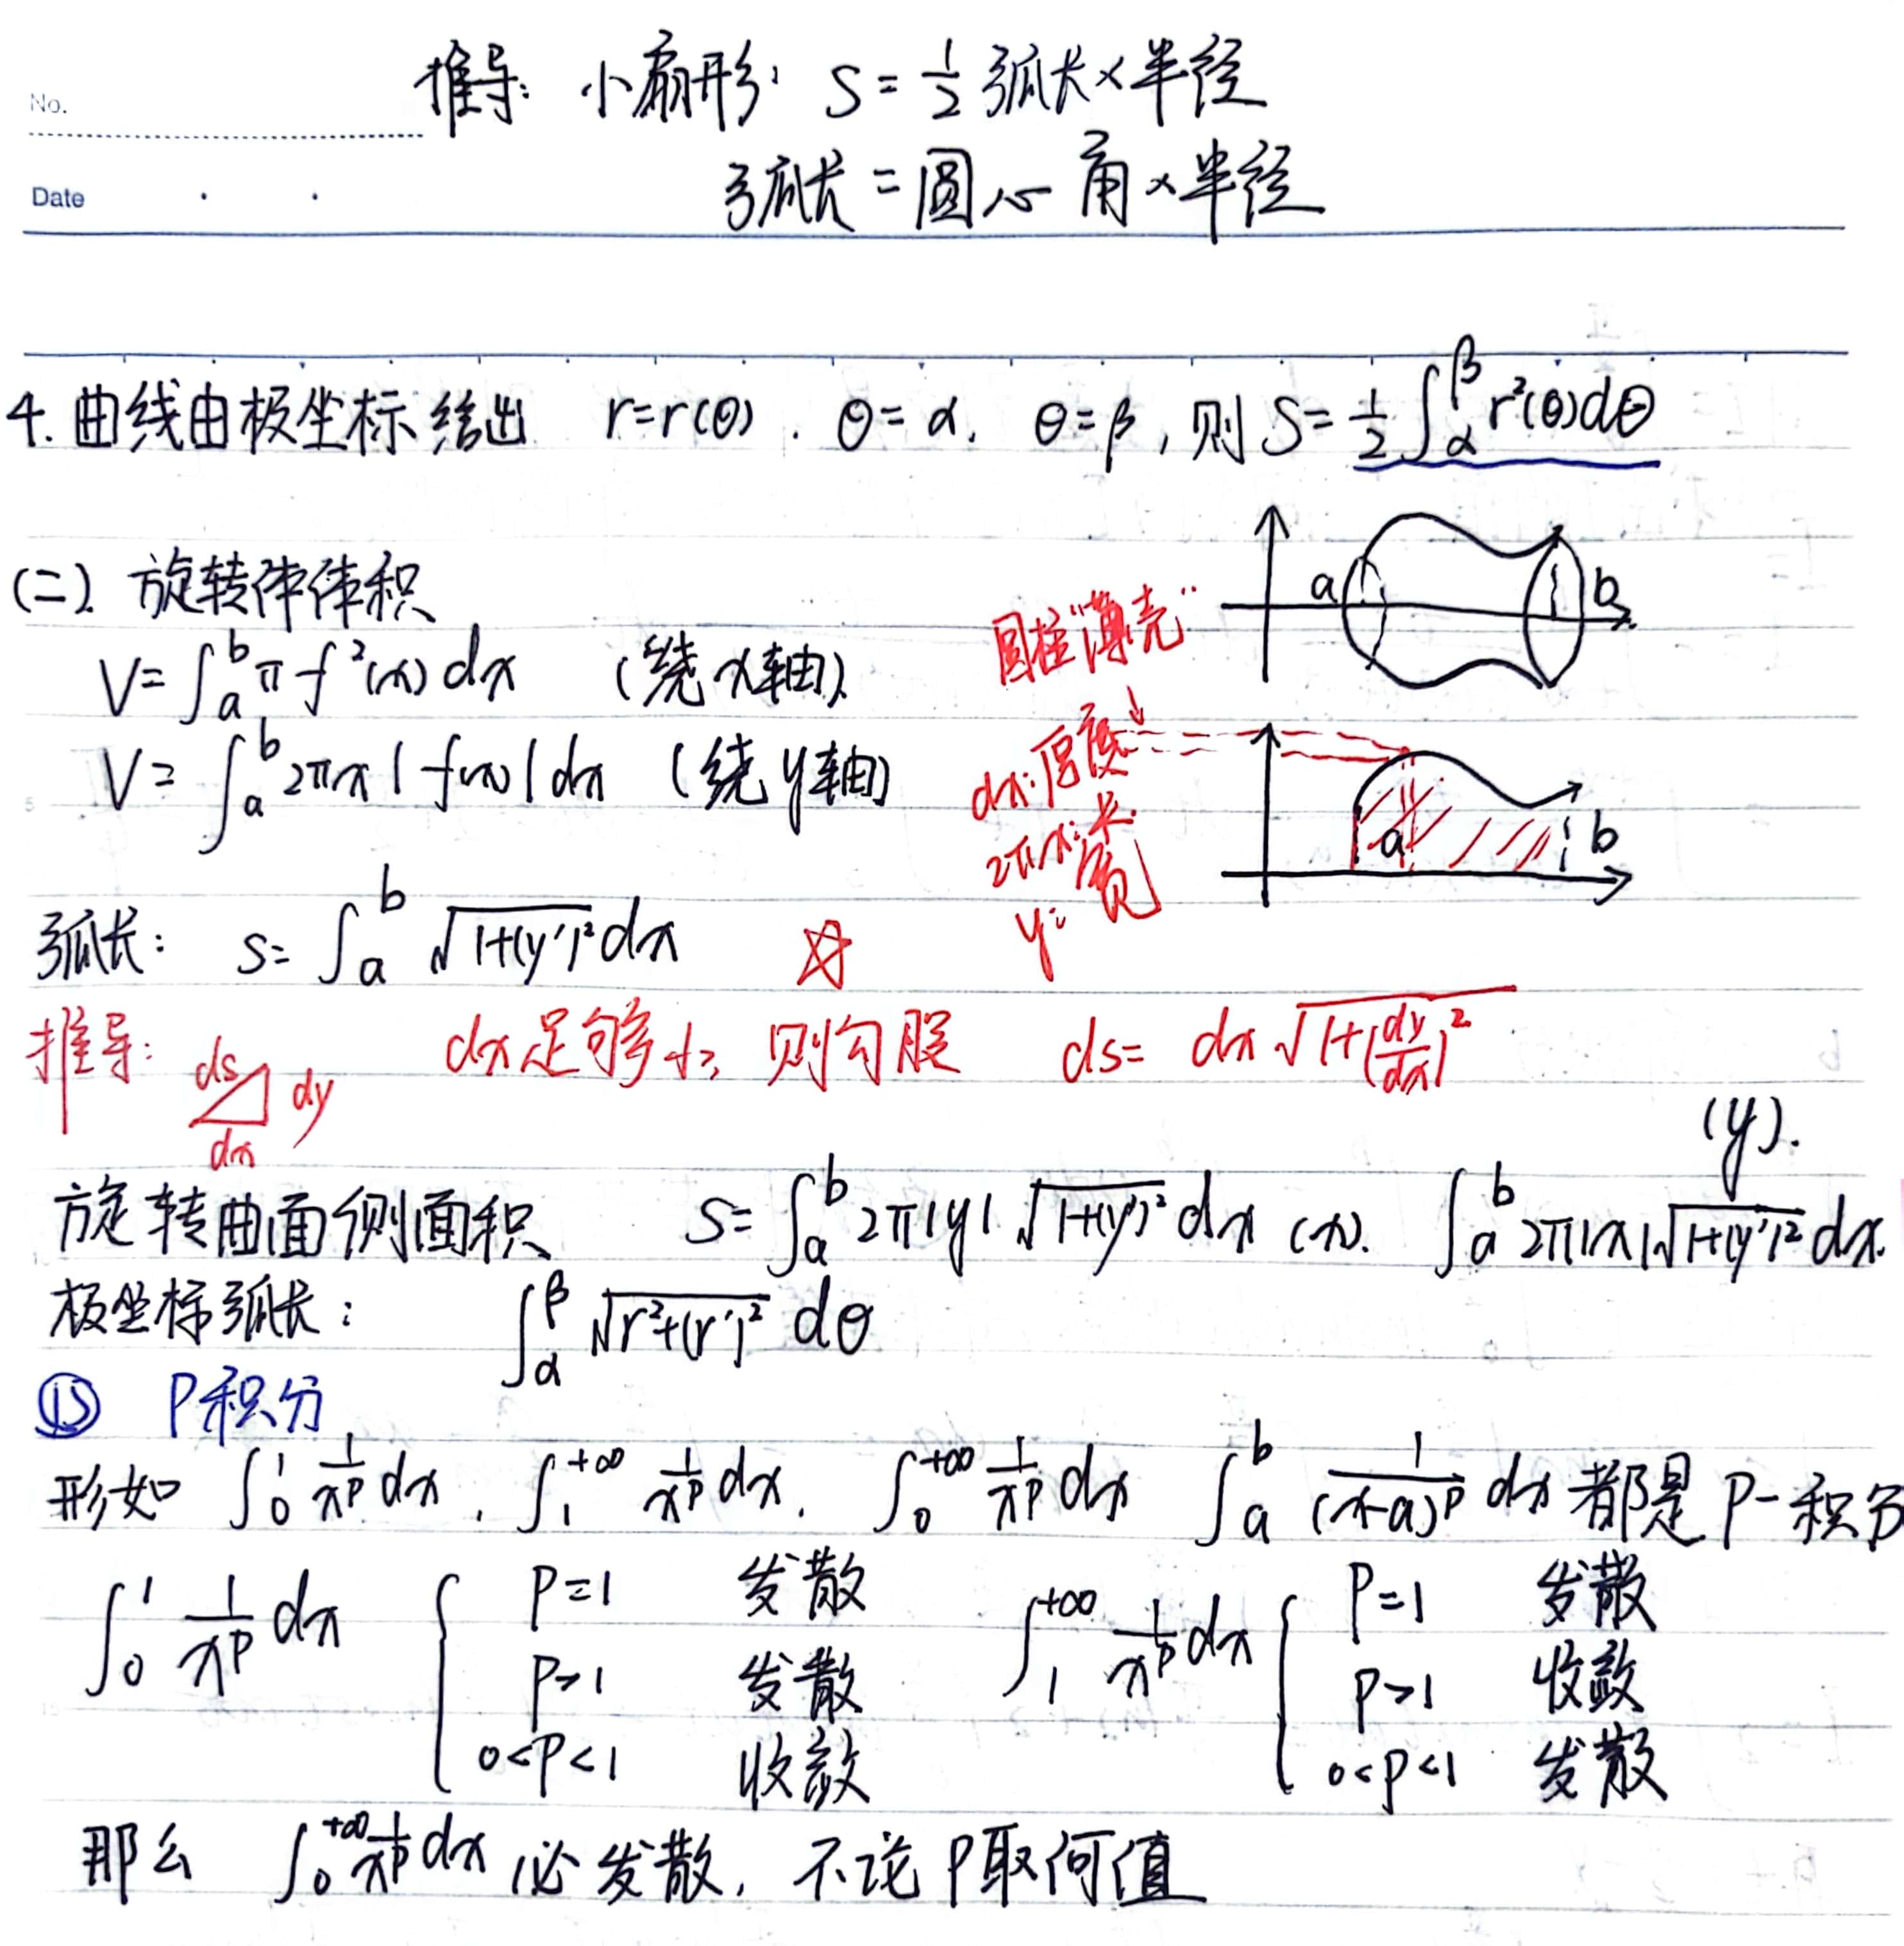 No.
推导: 小扇形: S = 1/2 弧长×半径
Date
弧长 = 圆心角×半径
4. 曲线由极坐标给出 r=r(θ). θ=α, θ=β, 则 S= 1/2 ∫_α^β r²(θ)dθ
(二) 旋转体体积
a b
圆柱"薄壳"
V= ∫_a^b π f²(x) dx (绕x轴)
dx: 厚度
V= ∫_a^b 2πx |f(x)| dx (绕y轴)
2πx: 长
a b
y: 宽
弧长: s= ∫_a^b √(1+(y')²) dx ☆
推导: ds dy dx dx足够小, 则勾股 ds= dx √(1+(dy/dx)²)
旋转曲面侧面积 S= ∫_a^b 2π|y| √(1+(y')²) dx (x). ∫_a^b 2π|x|√(1+(y')²) dx. (y).
极坐标弧长: ∫_α^β √(r²+(r')²) dθ
⑮ P积分
形如 ∫_0^1 1/x^p dx, ∫_1^{+∞} 1/x^p dx, ∫_0^{+∞} 1/x^p dx ∫_a^b 1/(x-a)^p dx 都是 P-积分
∫_0^1 1/x^p dx { P=1 发散 ∫_1^{+∞} 1/x^p dx { P=1 发散
P>1 发散 P>1 收敛
0<P<1 收敛 0<P<1 发散
那么 ∫_0^{+∞} 1/x^p dx 必发散, 不论P取何值